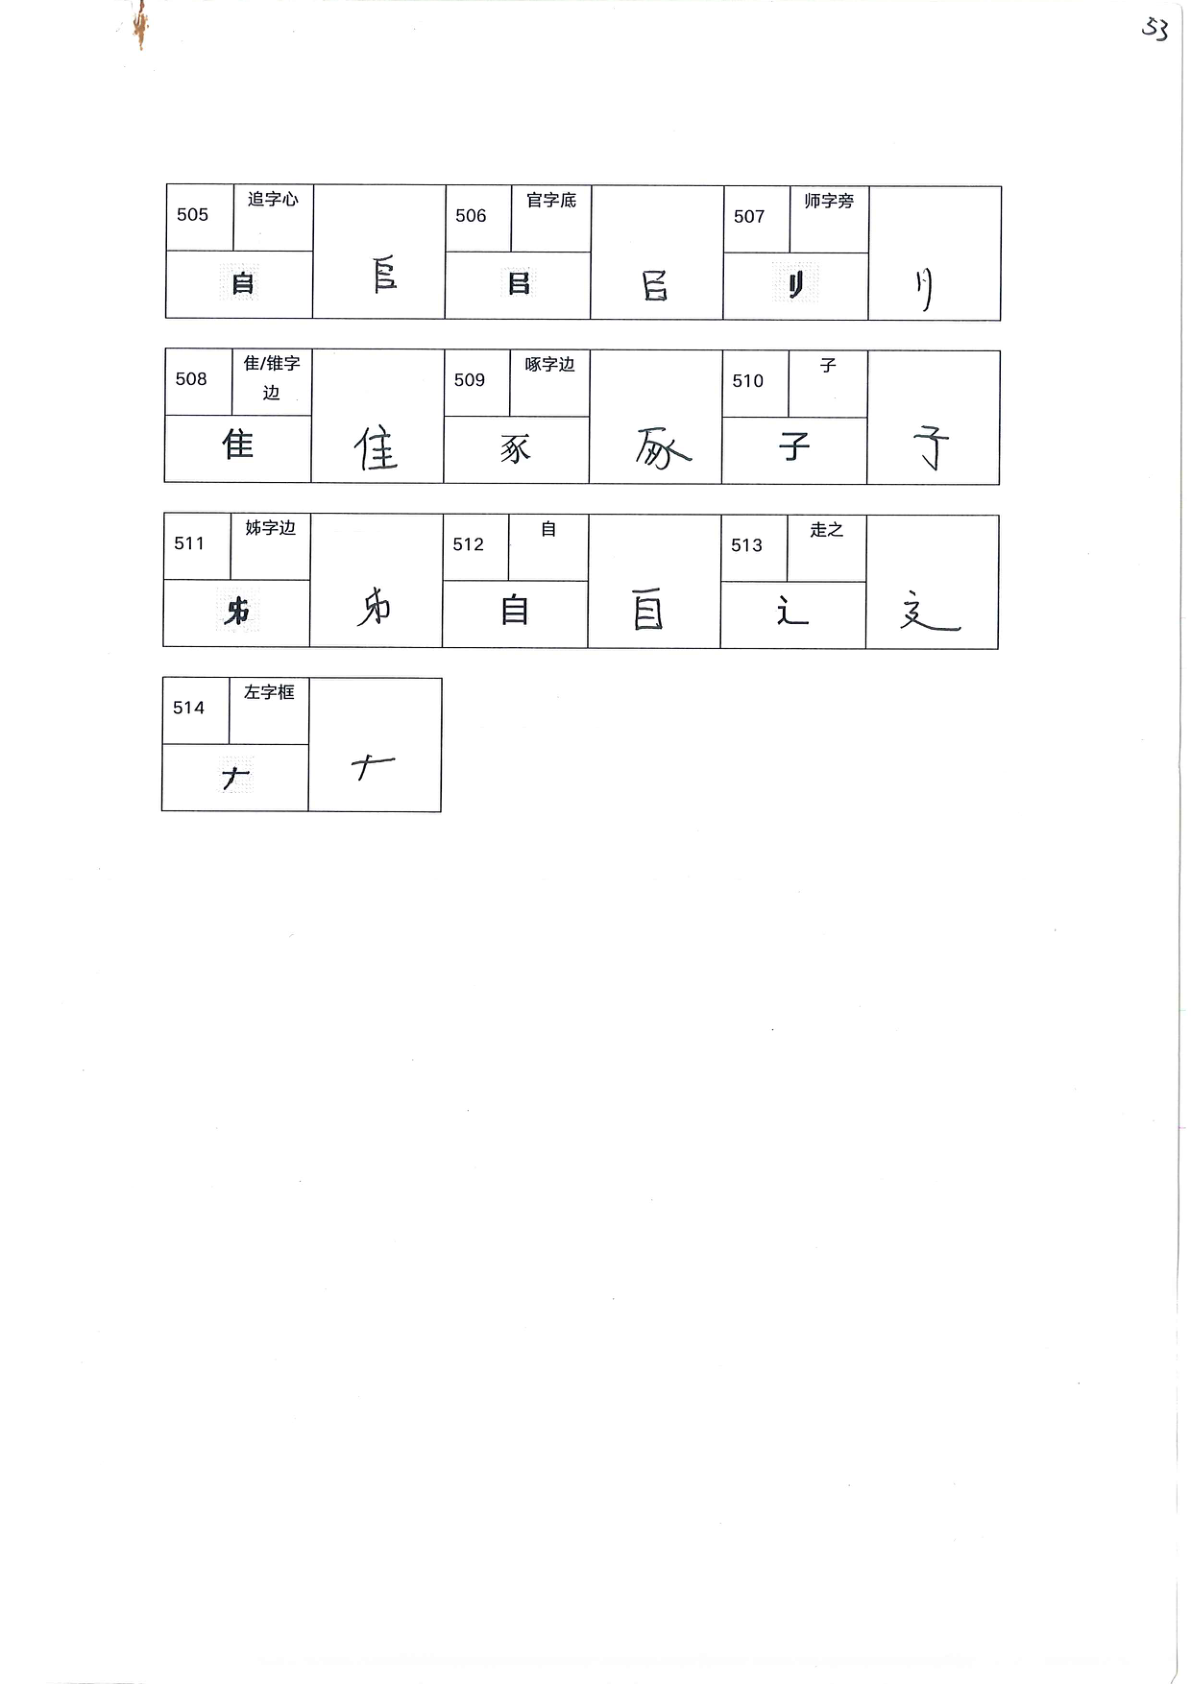 53
505 追字心 𠂤 𠂤
506 官字底 㠯 㠯
507 师字旁 刂 刂
508 隹/锥字边 隹 隹
509 啄字边 豖 豖
510 子 子 子
511 姊字边
512 自 自 自
513 走之 辶 辶
514 左字框 𠂇 𠂇